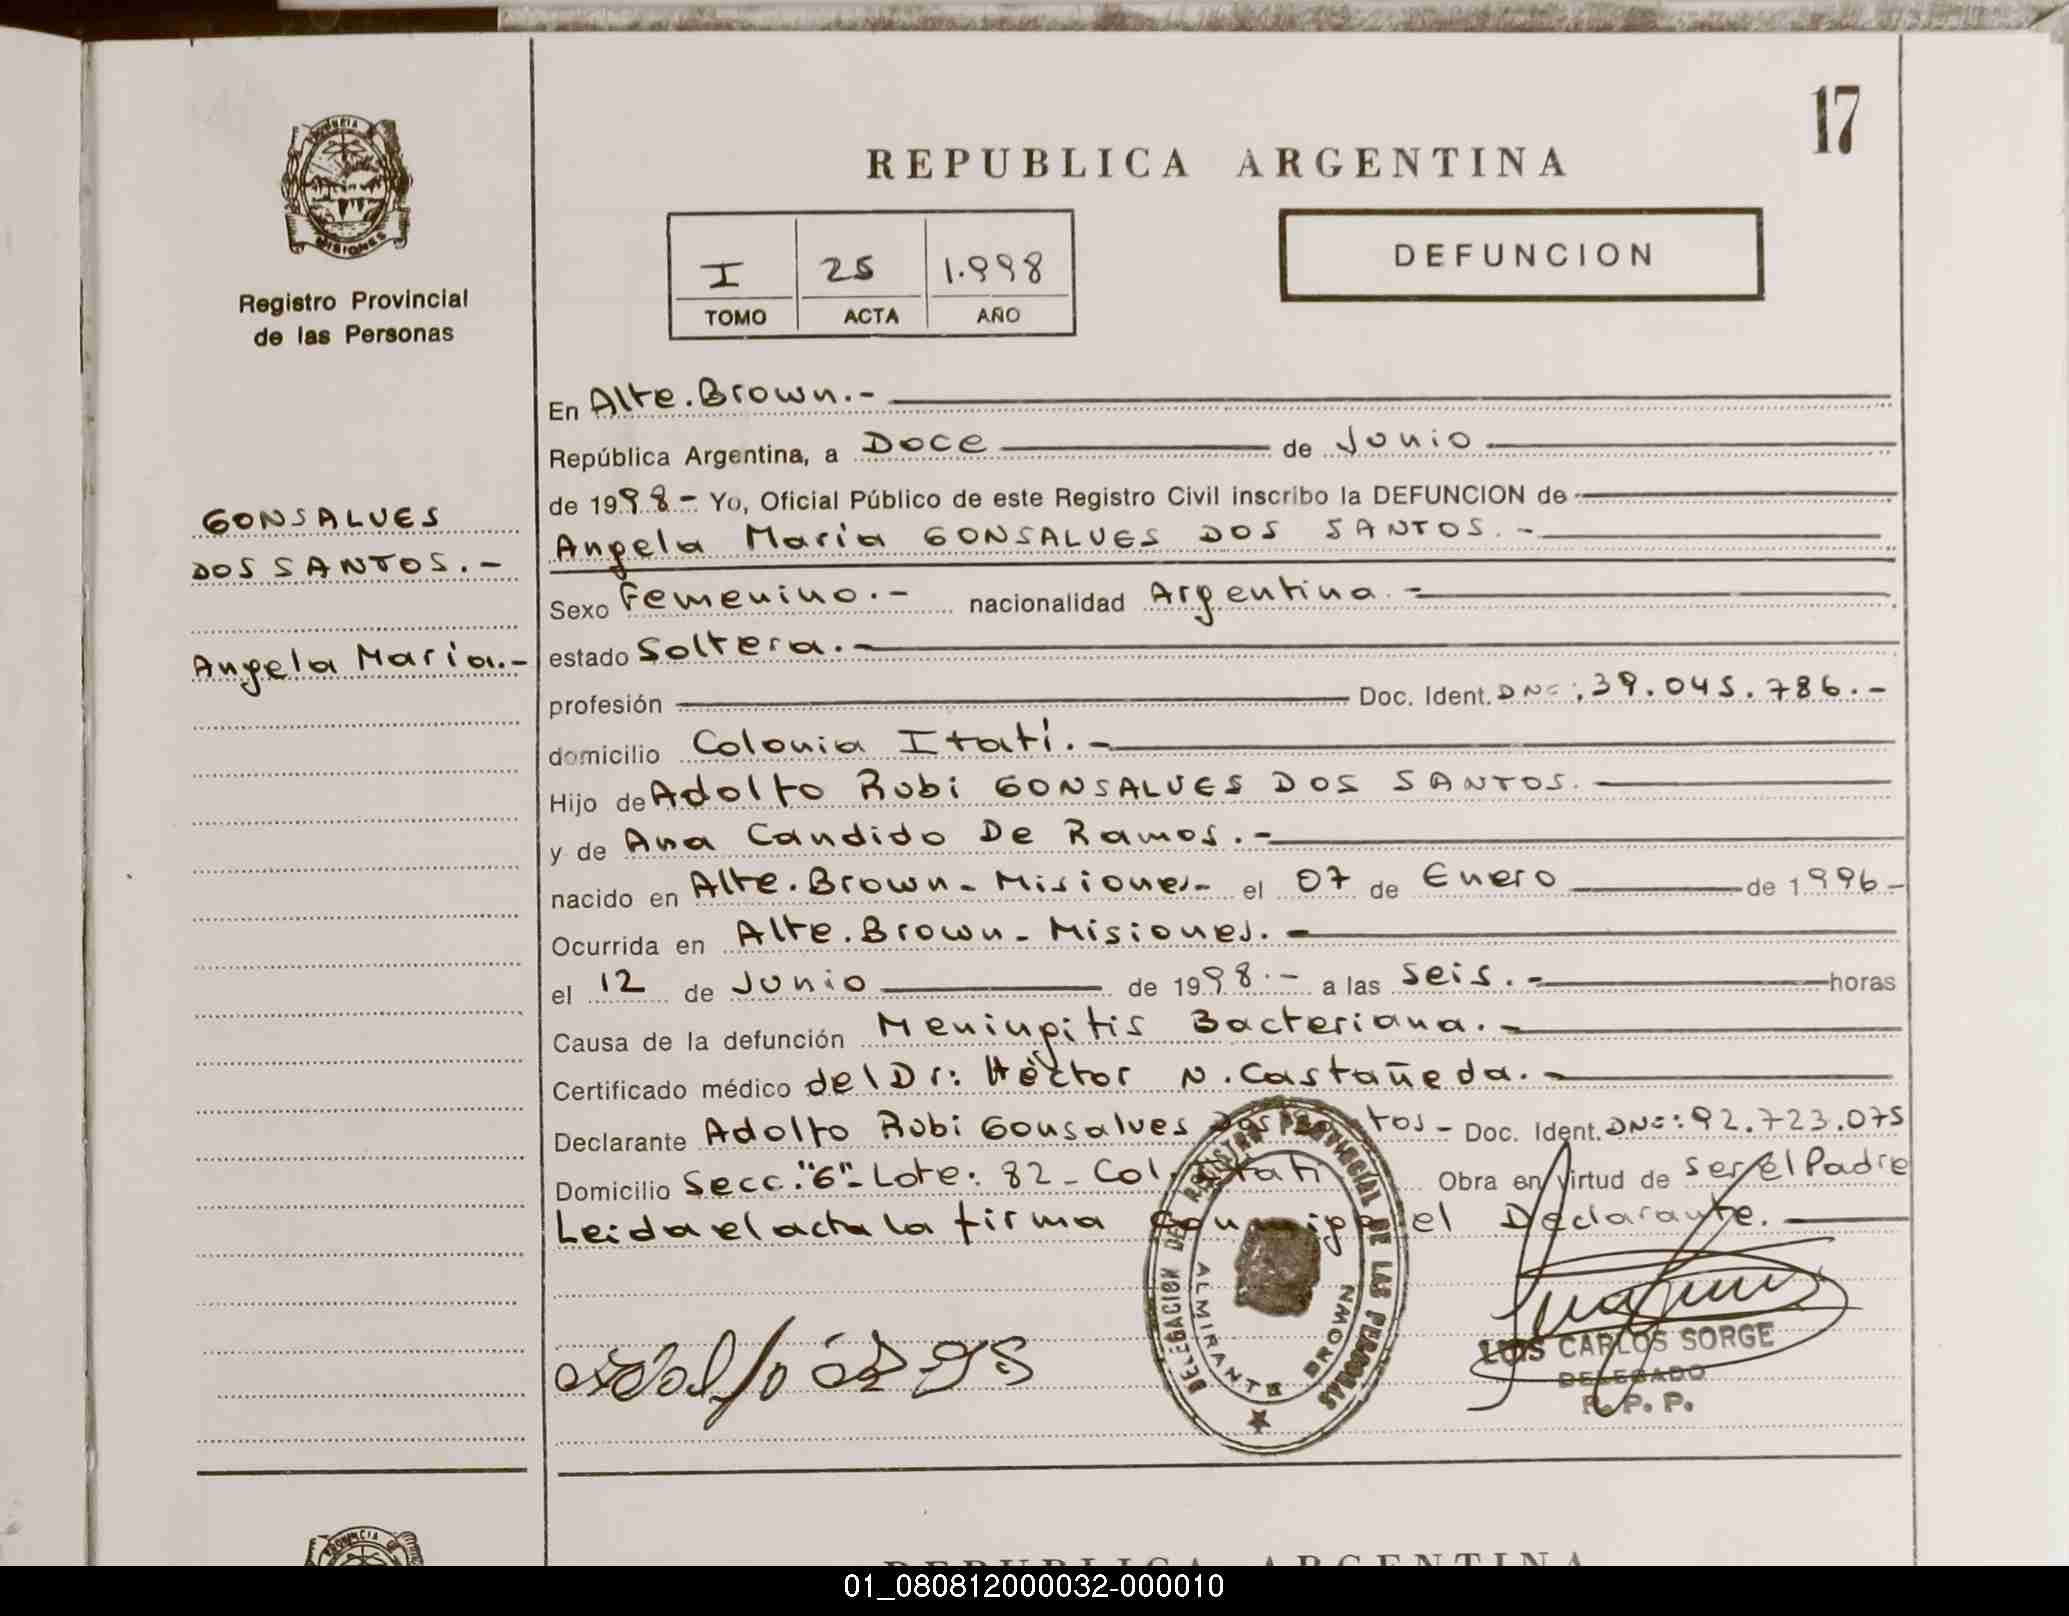 17
PROVINCIA
MISIONES
Registro Provincial
de las Personas
REPUBLICA ARGENTINA
I 25 1.998
TOMO ACTA AÑO
DEFUNCION
GONSALVES
DOS SANTOS.-
Angela María.-
En Alte. Brown.-
República Argentina, a Doce de Junio
de 1998- Yo, Oficial Público de este Registro Civil inscribo la DEFUNCION de
Angela María GONSALVES DOS SANTOS.-
Sexo Femenino.- nacionalidad Argentina.-
estado Soltera.-
profesión Doc. Ident. DNI: 39.045.786.-
domicilio Colonia Itatí.-
Hijo de Adolfo Rubi GONSALVES DOS SANTOS.
y de Ana Candido De Ramos.-
nacido en Alte. Brown- Misiones- el 07 de Enero de 1996-
Ocurrida en Alte. Brown- Misiones.-
el 12 de Junio de 1998.- a las Seis.- horas
Causa de la defunción Meningitis Bacteriana.-
Certificado médico del Dr: Héctor N. Castañeda.-
Declarante Adolfo Rubi Gonsalves Dos Santos- Doc. Ident. DNI: 92.723.075
Domicilio Secc: "6"- Lote: 82- Col. Itatí Obra en virtud de ser el Padre
Leida el acta la firma conmigo el Declarante.
DELEGACION DEL REGISTRO PROVINCIAL DE LAS PERSONAS
ALMIRANTE BROWN
LUIS CARLOS SORGE
DELEGADO
R. P. P.
PROVINCIA
REPUBLICA ARGENTINA
01_080812000032-000010